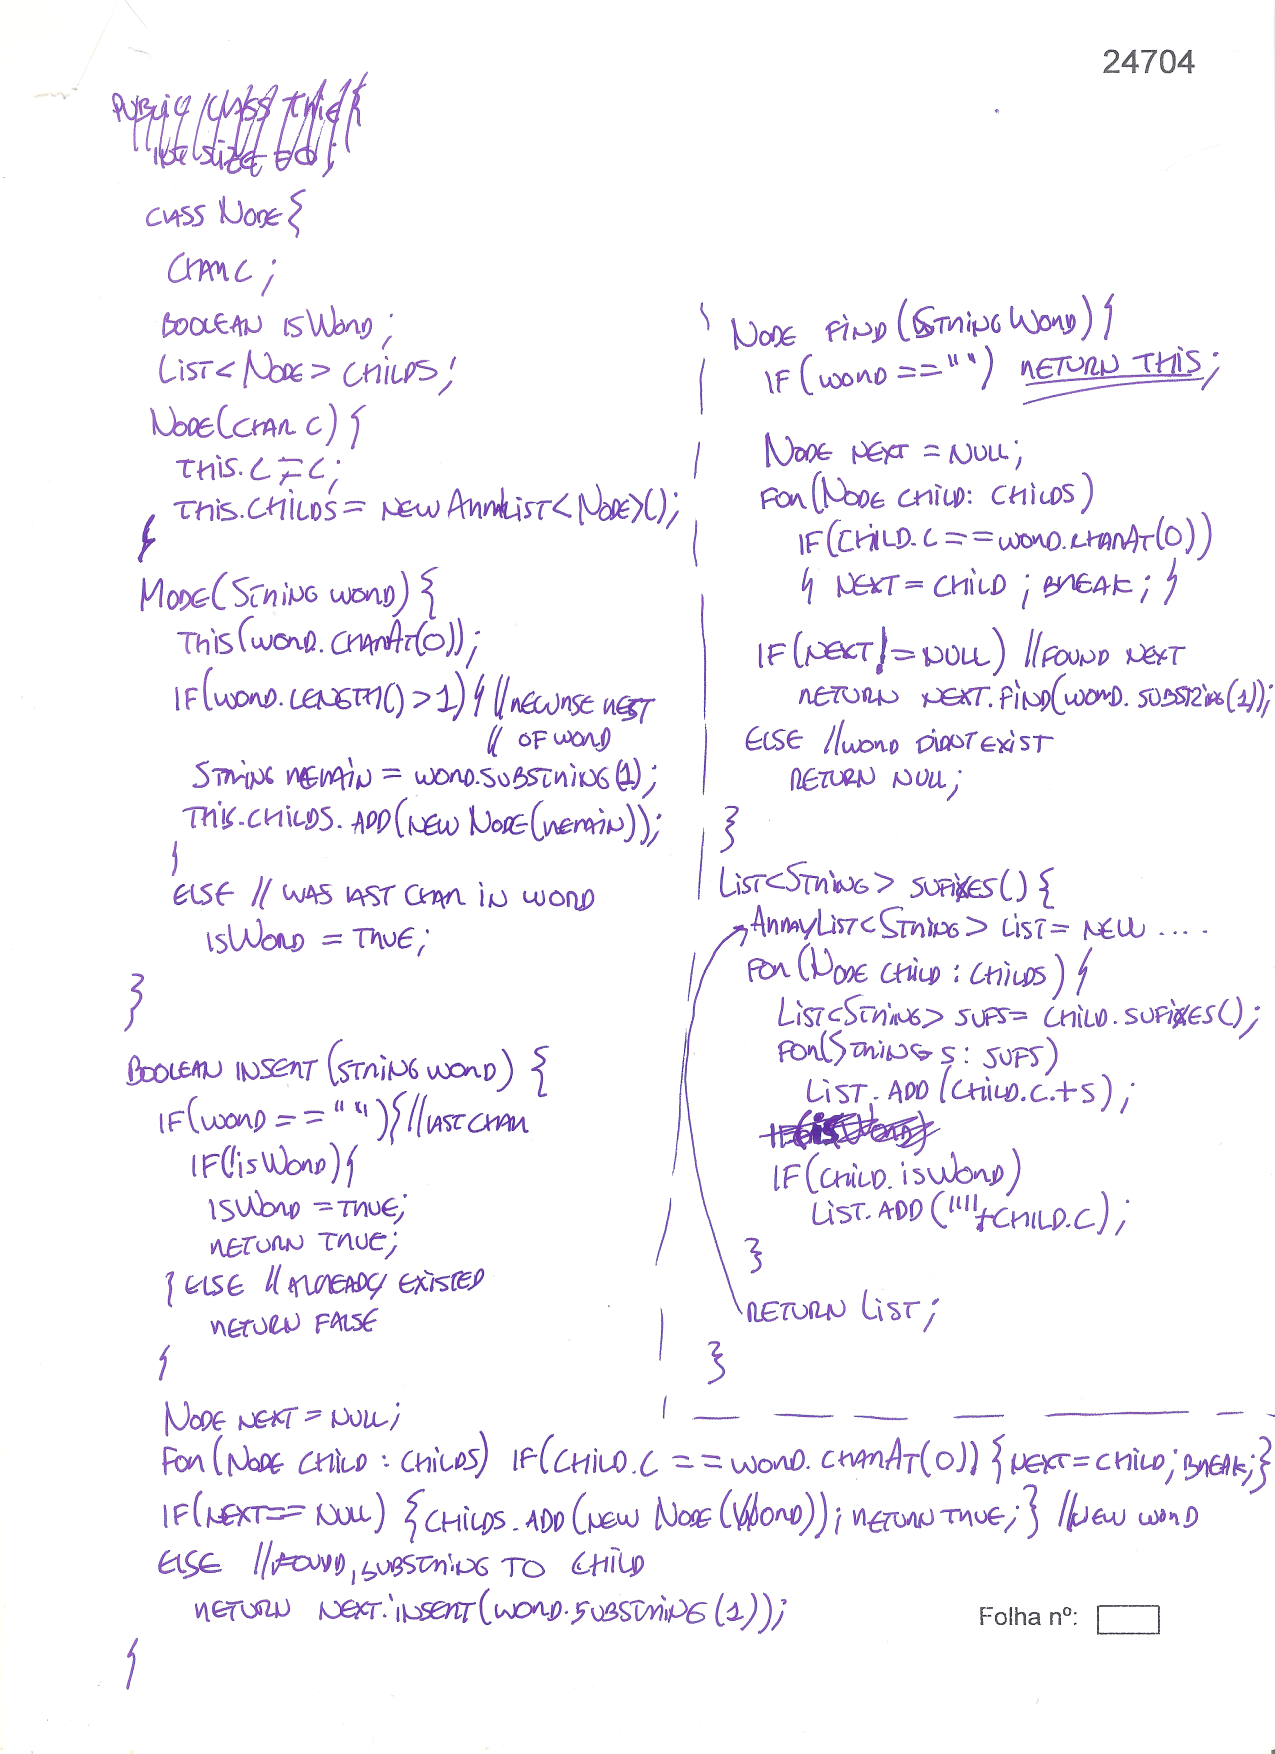 24704
PUBLIC CLASS TRIE{
INT SIZE = 0;
CLASS NODE{
CHAR C;
BOOLEAN ISWORD;
LIST<NODE> CHILDS;
NODE(CHAR C){
THIS.C = C;
THIS.CHILDS = NEW ARRAYLIST<NODE>();
}
NODE(STRING WORD){
THIS(WORD.CHARAT(0));
IF(WORD.LENGTH()>1){ //RECURSE REST
// OF WORD
STRING REMAIN = WORD.SUBSTRING(1);
THIS.CHILDS.ADD(NEW NODE(REMAIN));
}
ELSE // WAS LAST CHAR IN WORD
ISWORD = TRUE;
}
BOOLEAN INSERT(STRING WORD) {
IF(WORD == ""){//LAST CHAR
IF(!ISWORD){
ISWORD = TRUE;
RETURN TRUE;
} ELSE //ALREADY EXISTED
RETURN FALSE
}
NODE NEXT = NULL;
FOR(NODE CHILD : CHILDS) IF(CHILD.C == WORD.CHARAT(0)) {NEXT=CHILD; BREAK;}
IF(NEXT== NULL) {CHILDS.ADD(NEW NODE(WORD)); RETURN TRUE;} //NEW WORD
ELSE //FOUND, SUBSTRING TO CHILD
RETURN NEXT.INSERT(WORD.SUBSTRING(1));
}
NODE FIND(STRING WORD){
IF(WORD == "") RETURN THIS;
NODE NEXT = NULL;
FOR(NODE CHILD: CHILDS)
IF(CHILD.C == WORD.CHARAT(0))
{ NEXT = CHILD; BREAK; }
IF(NEXT != NULL) //FOUND NEXT
RETURN NEXT.FIND(WORD.SUBSTRING(1));
ELSE //WORD DIDNT EXIST
RETURN NULL;
}
LIST<STRING> SUFIXES(){
ARRAYLIST<STRING> LIST = NEW ....
FOR(NODE CHILD : CHILDS){
LIST<STRING> SUFS = CHILD.SUFIXES();
FOR(STRING S : SUFS)
LIST.ADD(CHILD.C.+S);
IF(ISWORD)
IF(CHILD.ISWORD)
LIST.ADD(""+CHILD.C);
}
RETURN LIST;
}
Folha nº: